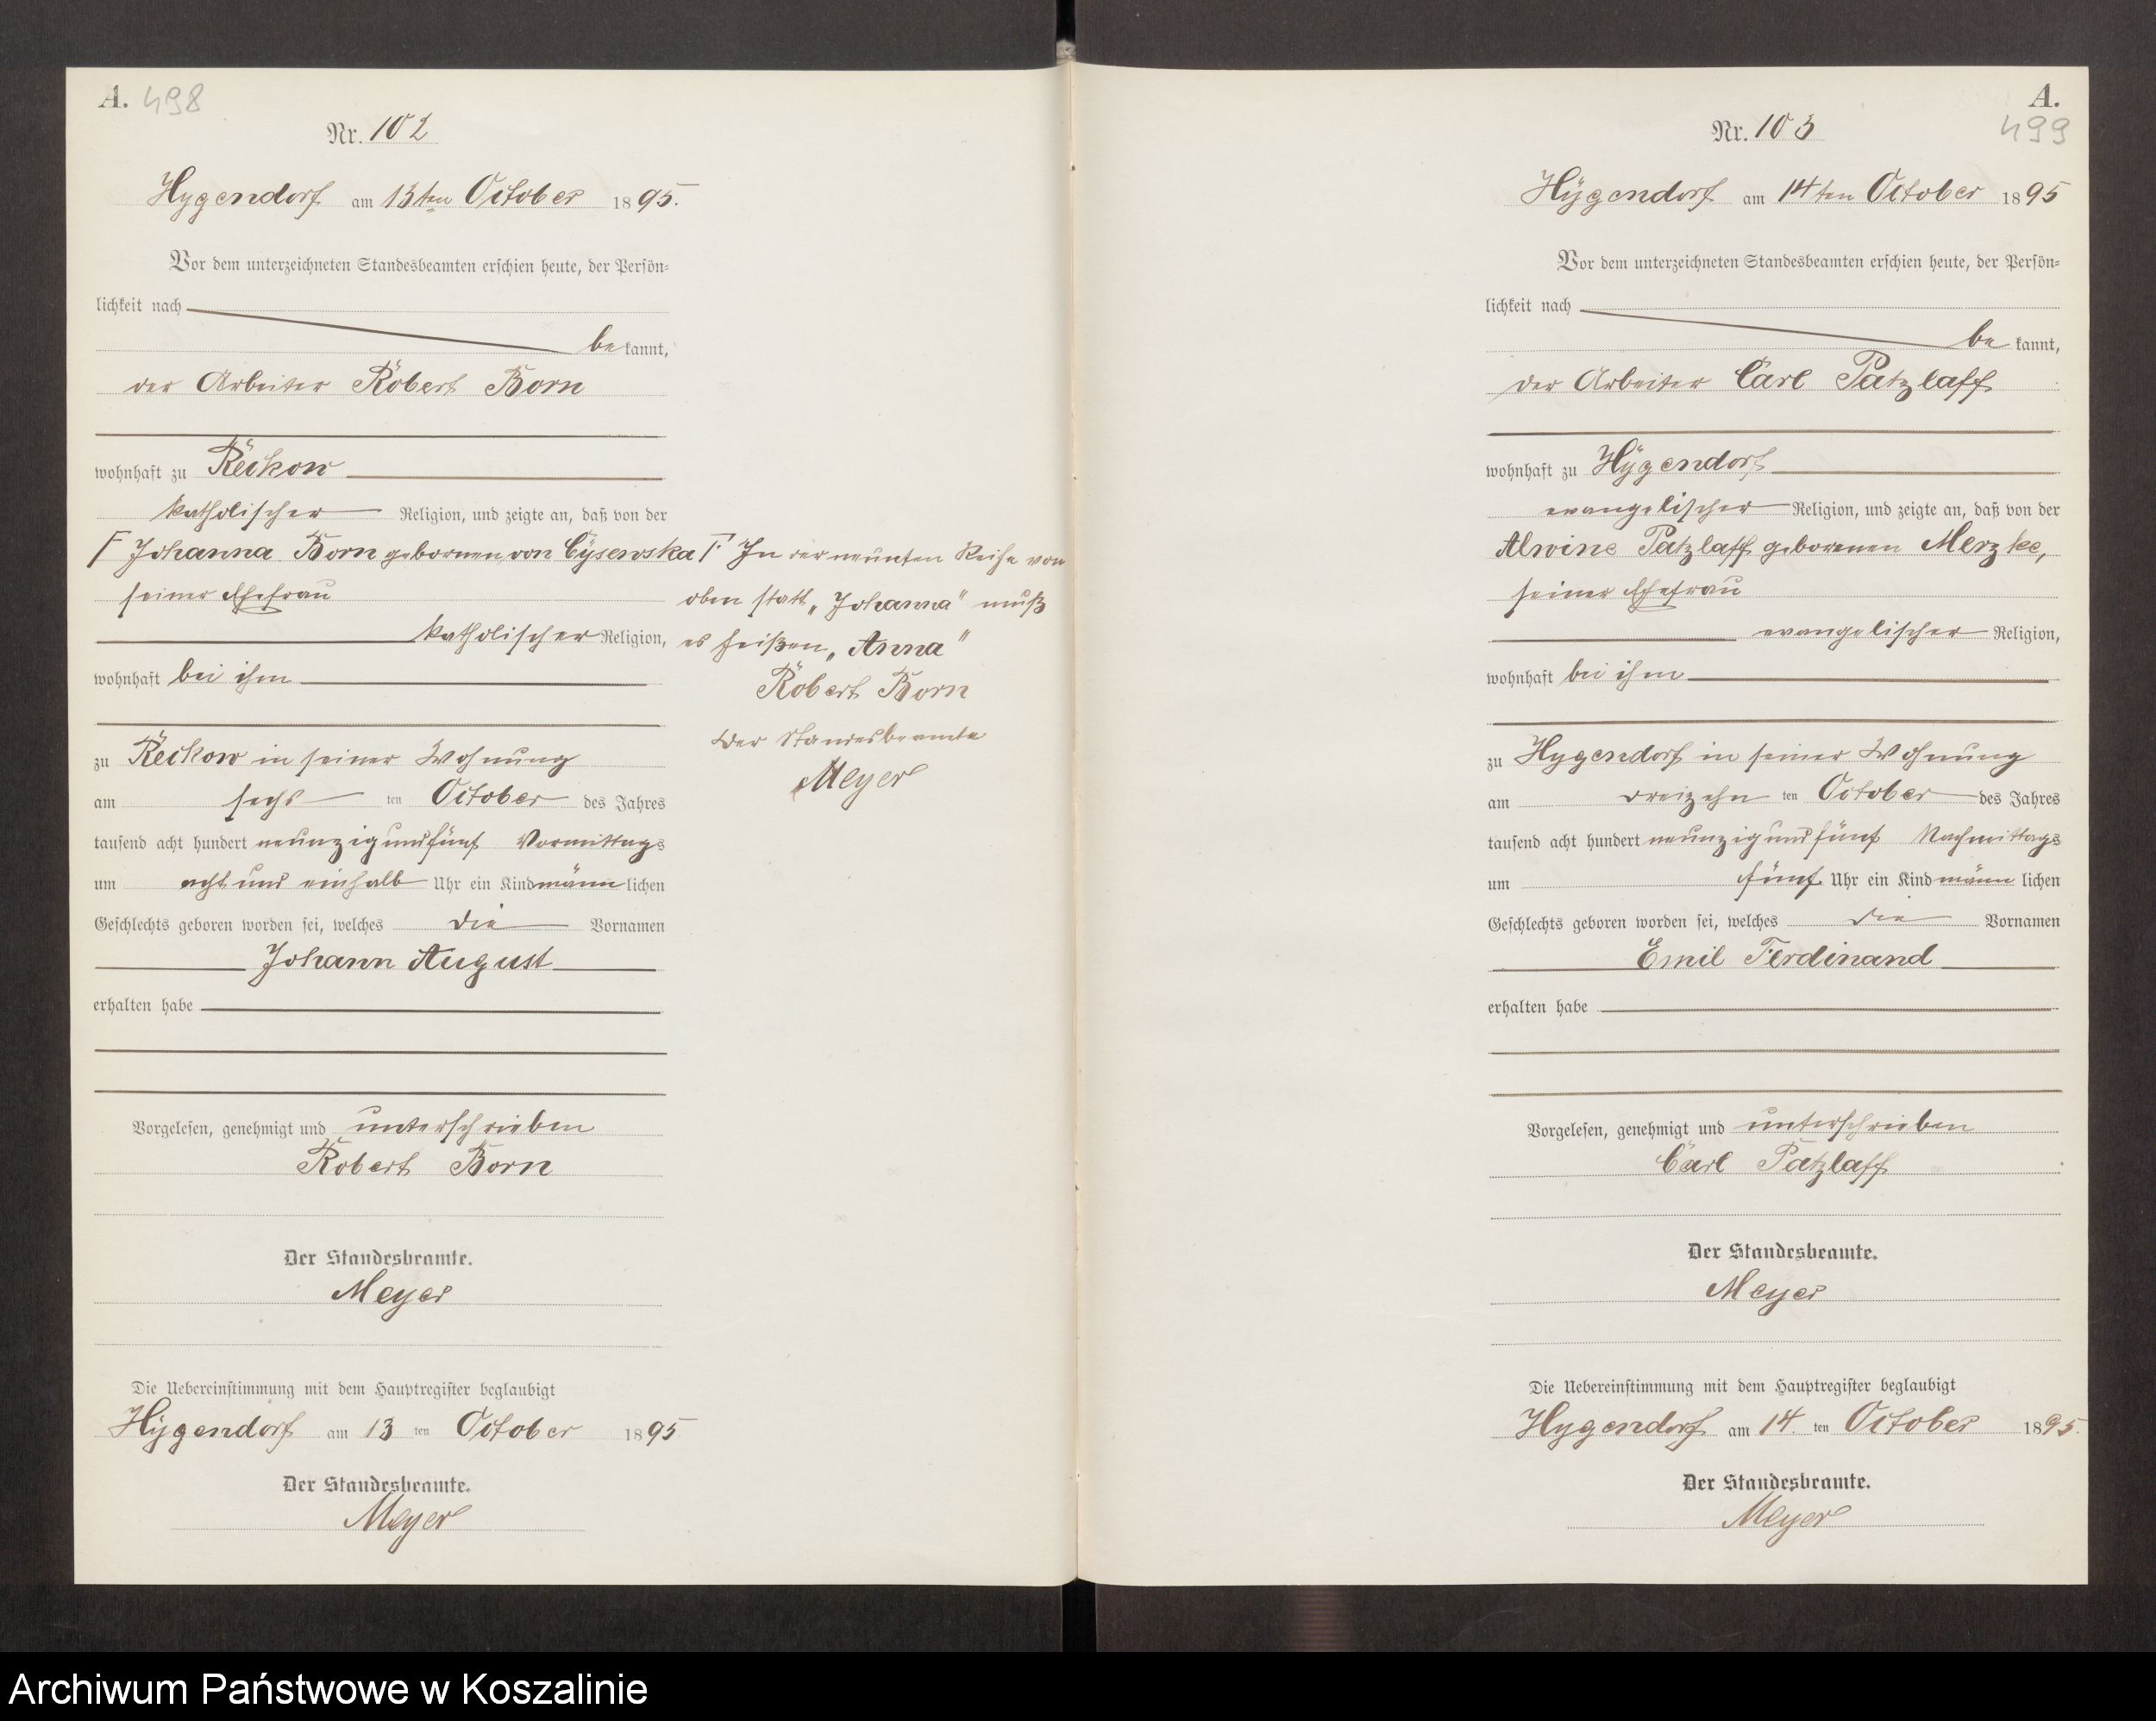 A. 498
Nr. 102
Hygendorf am 13ten October 1895.
Vor dem unterzeichneten Standesbeamten erschien heute, der Persön-
lichkeit nach
bekannt,
der Arbeiter Robert Born
wohnhaft zu Reckow
katholischer Religion, und zeigte an, daß von der
Johanna Born gebornen von Cysewska
seiner Ehefrau
katholischer Religion,
wohnhaft bei ihm
zu Reckow in seiner Wohnung
am sechs ten October des Jahres
tausend acht hundert neunzig und fünf Vormittags
um acht und einhalb Uhr ein Kind männlichen
Geschlechts geboren worden sei, welches die Vornamen
Johann August
erhalten habe
Vorgelesen, genehmigt und unterschrieben
Robert Born
Der Standesbeamte.
Meyer
Die Uebereinstimmung mit dem Hauptregister beglaubigt
Hygendorf am 13 ten October 1895
Der Standesbeamte.
Meyer
In der neunten Reihe von
oben statt „Johanna" muß
es heißen „Anna"
Robert Born
Der Standesbeamte
Meyer
A.
499
Nr. 103
Hygendorf am 14ten October 1895
Vor dem unterzeichneten Standesbeamten erschien heute, der Persön-
lichkeit nach
bekannt,
der Arbeiter Carl Patzlaff
wohnhaft zu Hygendorf
evangelischer Religion, und zeigte an, daß von der
Alwine Patzlaff geborenen Merzke,
seiner Ehefrau
evangelischer Religion,
wohnhaft bei ihm
zu Hygendorf in seiner Wohnung
am dreizehn ten October des Jahres
tausend acht hundert neunzig und fünf Nachmittags
um fünf Uhr ein Kind männlichen
Geschlechts geboren worden sei, welches die Vornamen
Emil Ferdinand
erhalten habe
Vorgelesen, genehmigt und unterschrieben
Carl Patzlaff
Der Standesbeamte.
Meyer
Die Uebereinstimmung mit dem Hauptregister beglaubigt
Hygendorf am 14. ten October 1895.
Der Standesbeamte.
Meyer
Archiwum Państwowe w Koszalinie